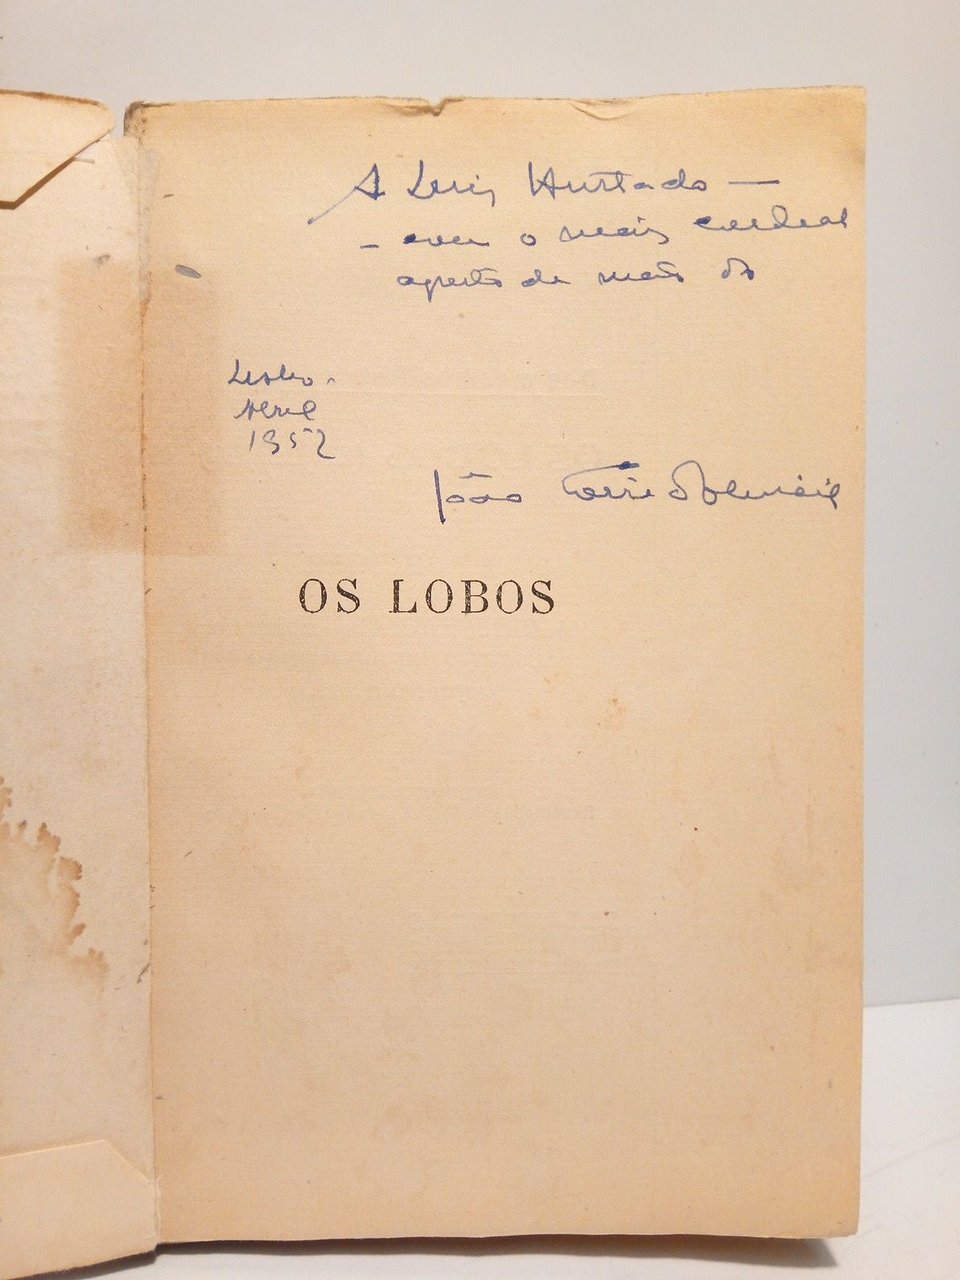 A Luis Hurtado —
- com o mais cordeal
aperto de mão do
Lisboa.
Abril
1952
João Correia d'Oliveira
OS LOBOS